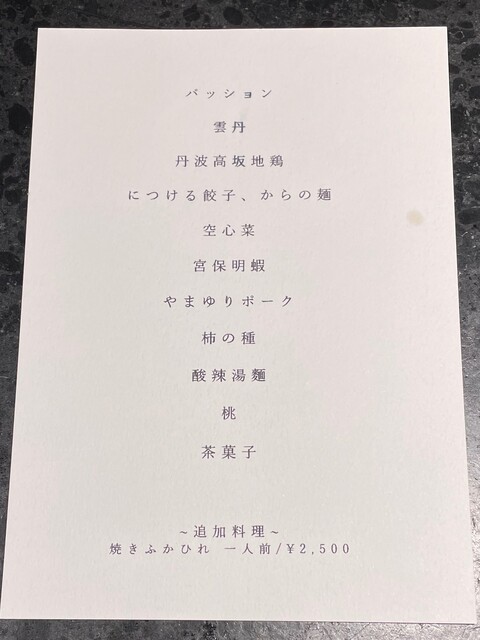 パッション
雲丹
丹波高坂地鶏
につける餃子、からの麺
空心菜
宮保明蝦
やまゆりポーク
柿の種
酸辣湯麵
桃
茶菓子
~追加料理~
焼きふかひれ 一人前/¥2,500